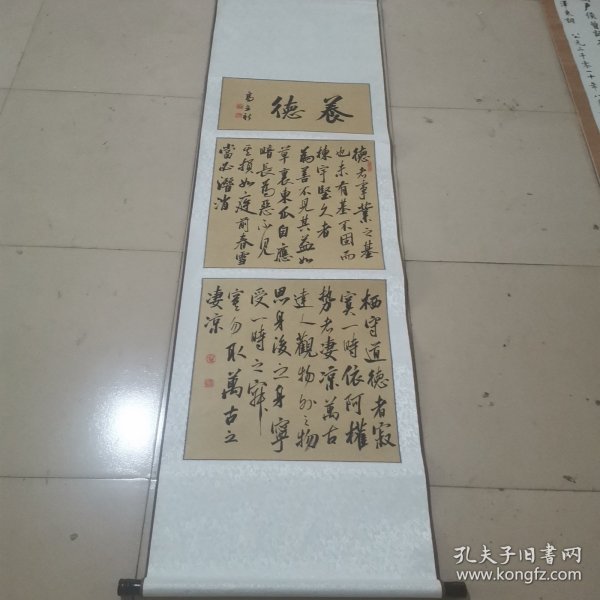 養德
德者事業之基
也未有基不固而
棟宇堅久者
為善不見其益如
草裏東瓜自應
暗長為惡不見
其損如庭前春雪
當必潛消
栖守道德者寂
寞一時依阿權
勢者凄凉萬古
達人觀物外之物
思身後之身寧
受一時之寂
寞勿取萬古之
凄凉
孔夫子旧书网
www.kongfz.com